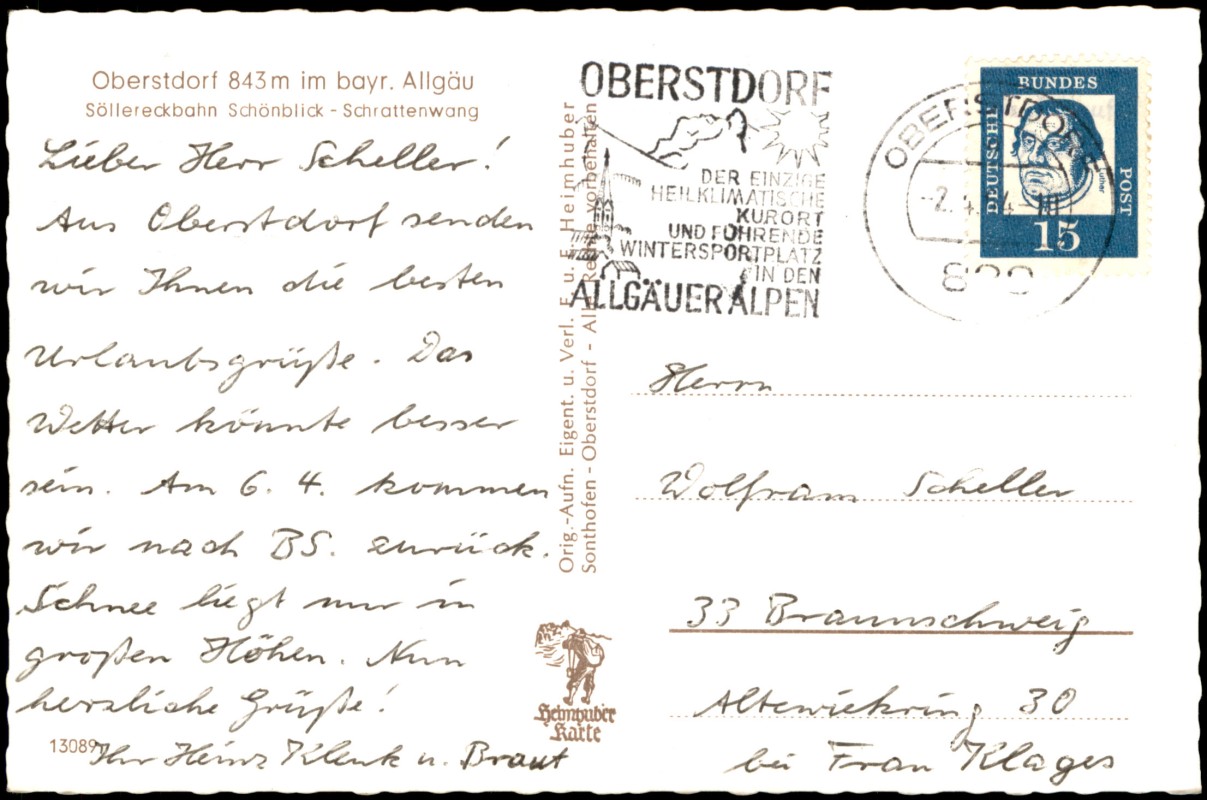 Oberstdorf 843 m im bayr. Allgäu
Söllereckbahn Schönblick - Schrattenwang
Lieber Herr Scheller!
Aus Oberstdorf senden
wir Ihnen die besten
Urlaubsgrüße. Das
Wetter könnte besser
sein. Am 6. 4. kommen
wir nach BS. zurück.
Schnee liegt nur in
großen Höhen. Nun
herzliche Grüße!
Ihr Heinz Klenk u. Braut
13089
Orig.-Aufn. Eigent. u. Verl. E. u. E. Heimhuber
Sonthofen - Oberstdorf - Alle Rechte vorbehalten
Heimhuber
Karte
OBERSTDORF
DER EINZIGE
HEILKLIMATISCHE
KURORT
UND FÜHRENDE
WINTERSPORTPLATZ
IN DEN
ALLGÄUER ALPEN
OBERSTDORF
-2. 4. 4
DEUTSCHE
BUNDES
POST
Luther
15
Herrn
Wolfram Scheller
33 Braunschweig
Altewiekring 30
bei Frau Klages